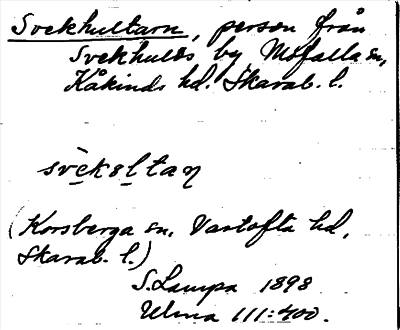 Svekhultarn, person från
Svekhults by, Mofalla sn,
Kåkinds hd. Skarab. l.
svekeltaŋ
(Korsberga sn, Vartofta hd,
Skarab. l.)
S. Lampa 1898
Ulma 111:400.